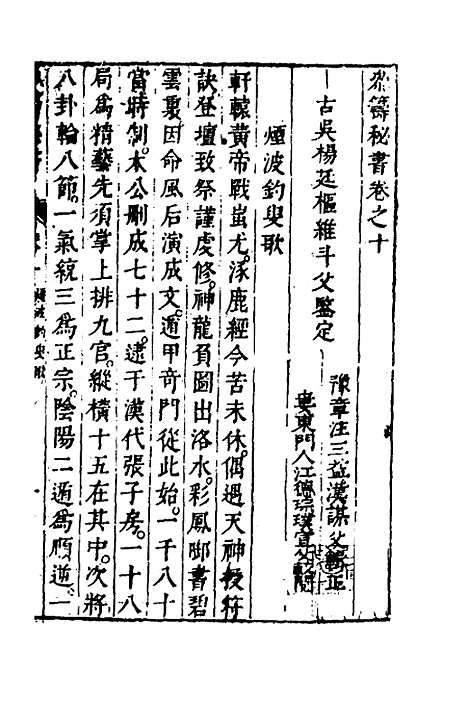 參籌秘書卷之十
古吳楊廷樞維斗父鑒定
豫章汪三益漢謀父輯正
婁東門人江德琮璞宜父
煙波釣叟歌
軒轅黃帝戰蚩尤涿鹿經今苦未休偶遇天神授符
訣登壇致祭謹虔修神龍負圖出洛水彩鳳啣書碧
雲裏因命風后演成文遁甲奇門從此始一千八十
當時制太公刪成七十二逮于漢代張子房一十八
局爲精藝先須掌上排九宮縱橫十五在其中次將
八卦輪八節一氣統三爲正宗陰陽二遁爲順逆一
煙波釣叟歌